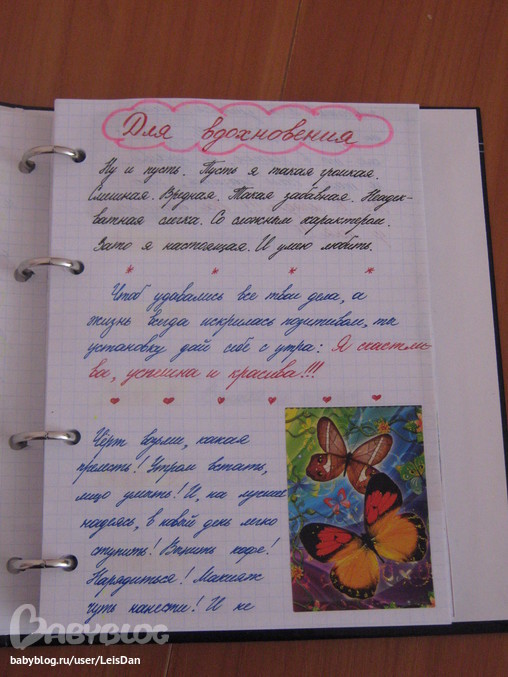 Для вдохновения
Ну и пусть. Пусть я такая громкая.
Смешная. Вредная. Такая забавная. Неадек-
ватная слегка. Со сложным характером.
Зато я настоящая. И умею любить.
Чтоб удавались все твои дела, а
жизнь всегда искрилась позитивом, ты
установку дай себе с утра: Я счастли
ва, успешна и красива!!!
Чёрт возьми, какая
прелесть! Утром встать,
лицо умыть! И, на лучшее
надеясь, в новый день легко
ступить! Выпить кофе!
Нарядиться! Макияж
чуть нанести! И не
BABYBLOG
babyblog.ru/user/LeisDan